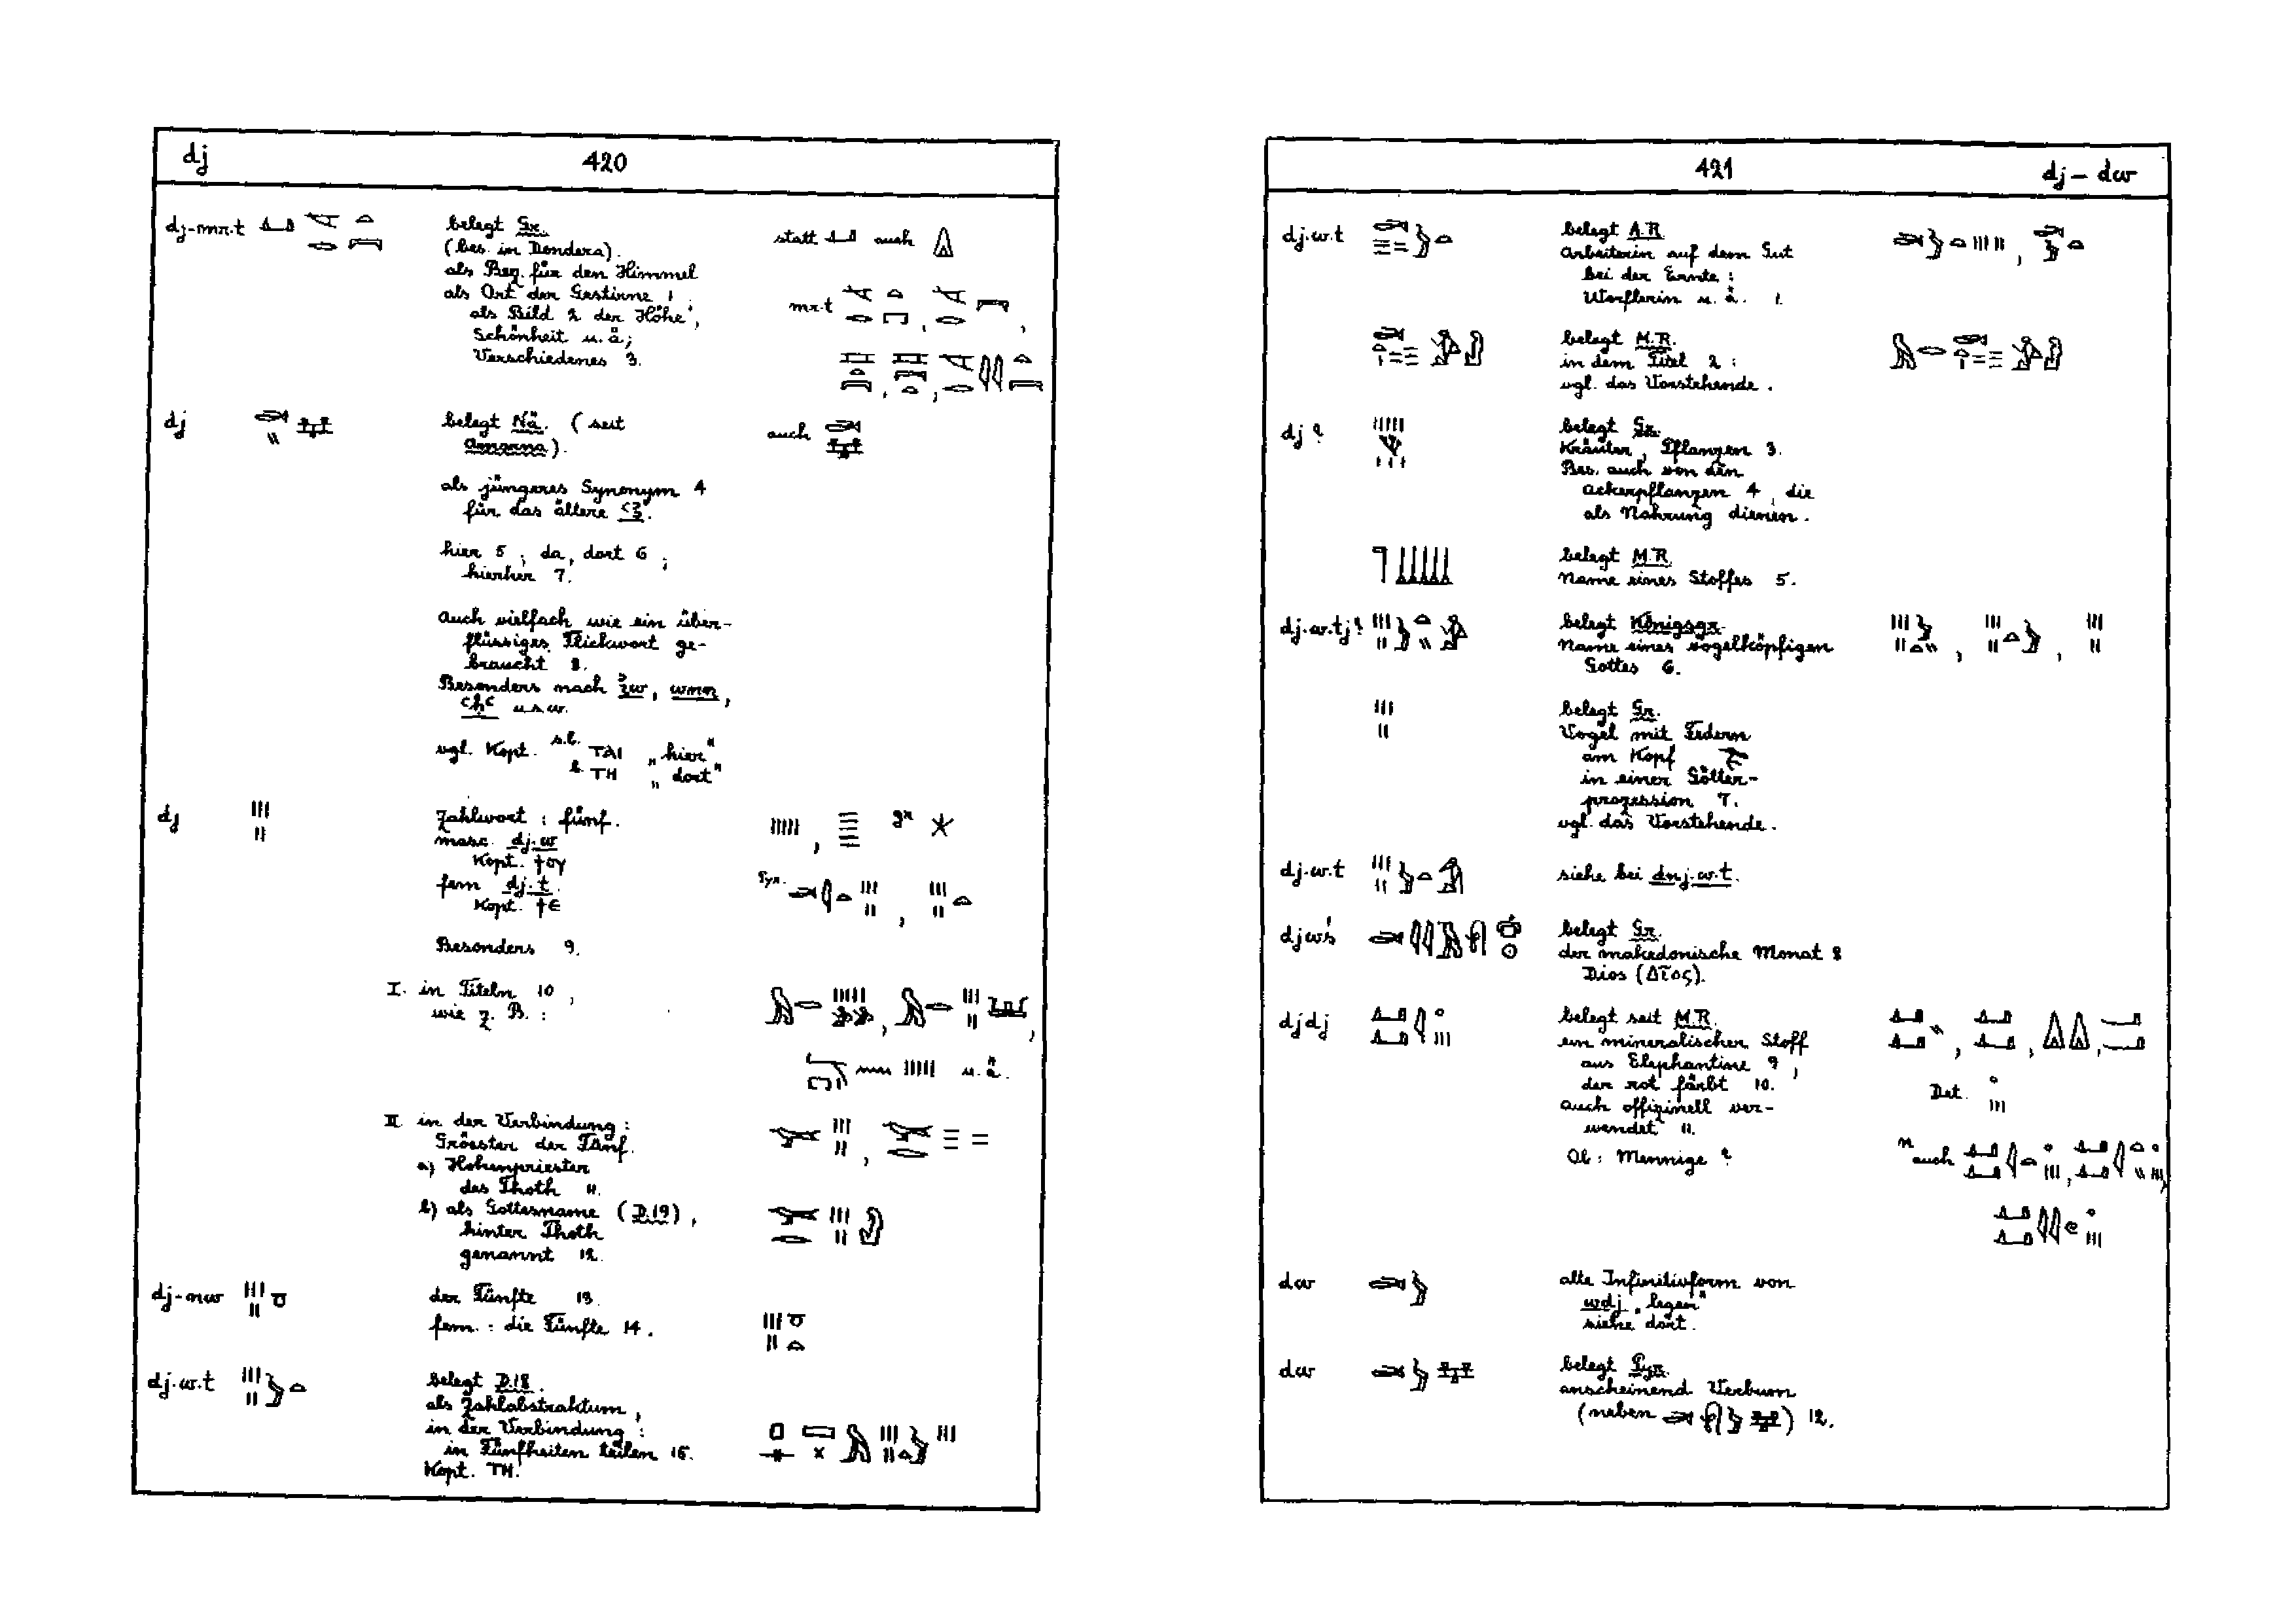 dj 420
dj-mr.t belegt Gr.
(bes. in Dendera). statt auch
als Bez. für den Himmel
als Ort der Gestirne 1;
als Bild 2 der Höhe, mr.t
Schönheit u. ä;
Verschiedenes 3.
dj belegt Nä. (seit auch
Amarna).
als jüngeres Synonym 4
für das ältere ꜥꜣ.
hier 5; da, dort 6;
hierher 7.
Auch vielfach wie ein über-
flüssiges Flickwort ge-
braucht 8.
Besonders nach ꜣw, wnn,
ꜥḥꜥ u.s.w.
vgl. Kopt. s.b. ΤΑΙ „hier"
b. ΤΗ „dort"
dj Zahlwort: fünf. gr
masc. dj.w
Kopt. ϯⲟⲩ
fem dj.t. Pyr.
Kopt. ϯⲉ
Besonders 9.
I. in Titeln 10,
wie z. B.:
u. ä.
II in der Verbindung:
Grösster der Fünf.
a) Hohenpriester
des Thoth 11.
b) als Gottesname (D.19),
hinter Thoth
genannt 12.
dj-nw der Fünfte 13.
fem.: die Fünfte 14.
dj.w.t belegt D.18.
als Zahlabstraktum,
in der Verbindung:
in Fünfheiten teilen 15.
Kopt. ΤΗ.
421 dj – dw
dj.w.t belegt A.R.
Arbeiterin auf dem Gut
bei der Ernte:
Worflerin u. ä. 1.
belegt M.R.
in dem Titel 2:
vgl. das Vorstehende.
dj? belegt Gr.
Kräuter, Pflanzen 3.
Bes. auch von den
Ackerpflanzen 4, die
als Nahrung dienen.
belegt M.R.
Name eines Stoffes 5.
dj.w.tj? belegt Königsgr.
Name eines vogelköpfigen
Gottes 6.
belegt Gr.
Vogel mit Federn
am Kopf
in einer Götter-
prozession 7.
vgl. das Vorstehende.
dj.w.t siehe bei dnj.w.t.
djwś belegt Gr.
der makedonische Monat 8
Dios (Δῖος).
djdj belegt seit M.R.
ein mineralischer Stoff
aus Elephantine 9,
der rot färbt 10. Det.
auch offizinell ver-
wendet 11.
Ob: Mennige? n auch
dw alte Infinitivform von
wdj „legen"
siehe dort.
dw belegt Pyr.
anscheinend Verbum
(neben ) 12.